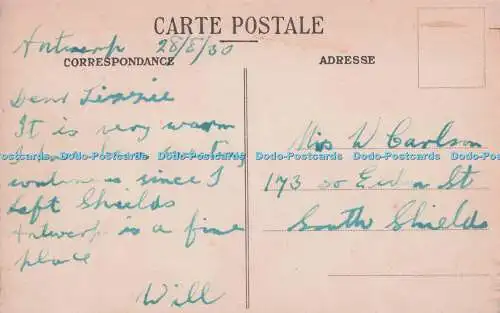 CARTE POSTALE
Antwerp 28/8/30
CORRESPONDANCE
ADRESSE
Dear Lizzie
It is very warm
I
since I
left Shields
Antwerp is a fine
place
Will
Mrs W Carlson
173 St
South Shields
Dodo-Postcards Dodo-Postcards Dodo-Postcards Dodo-Postcards Dodo-Postcards